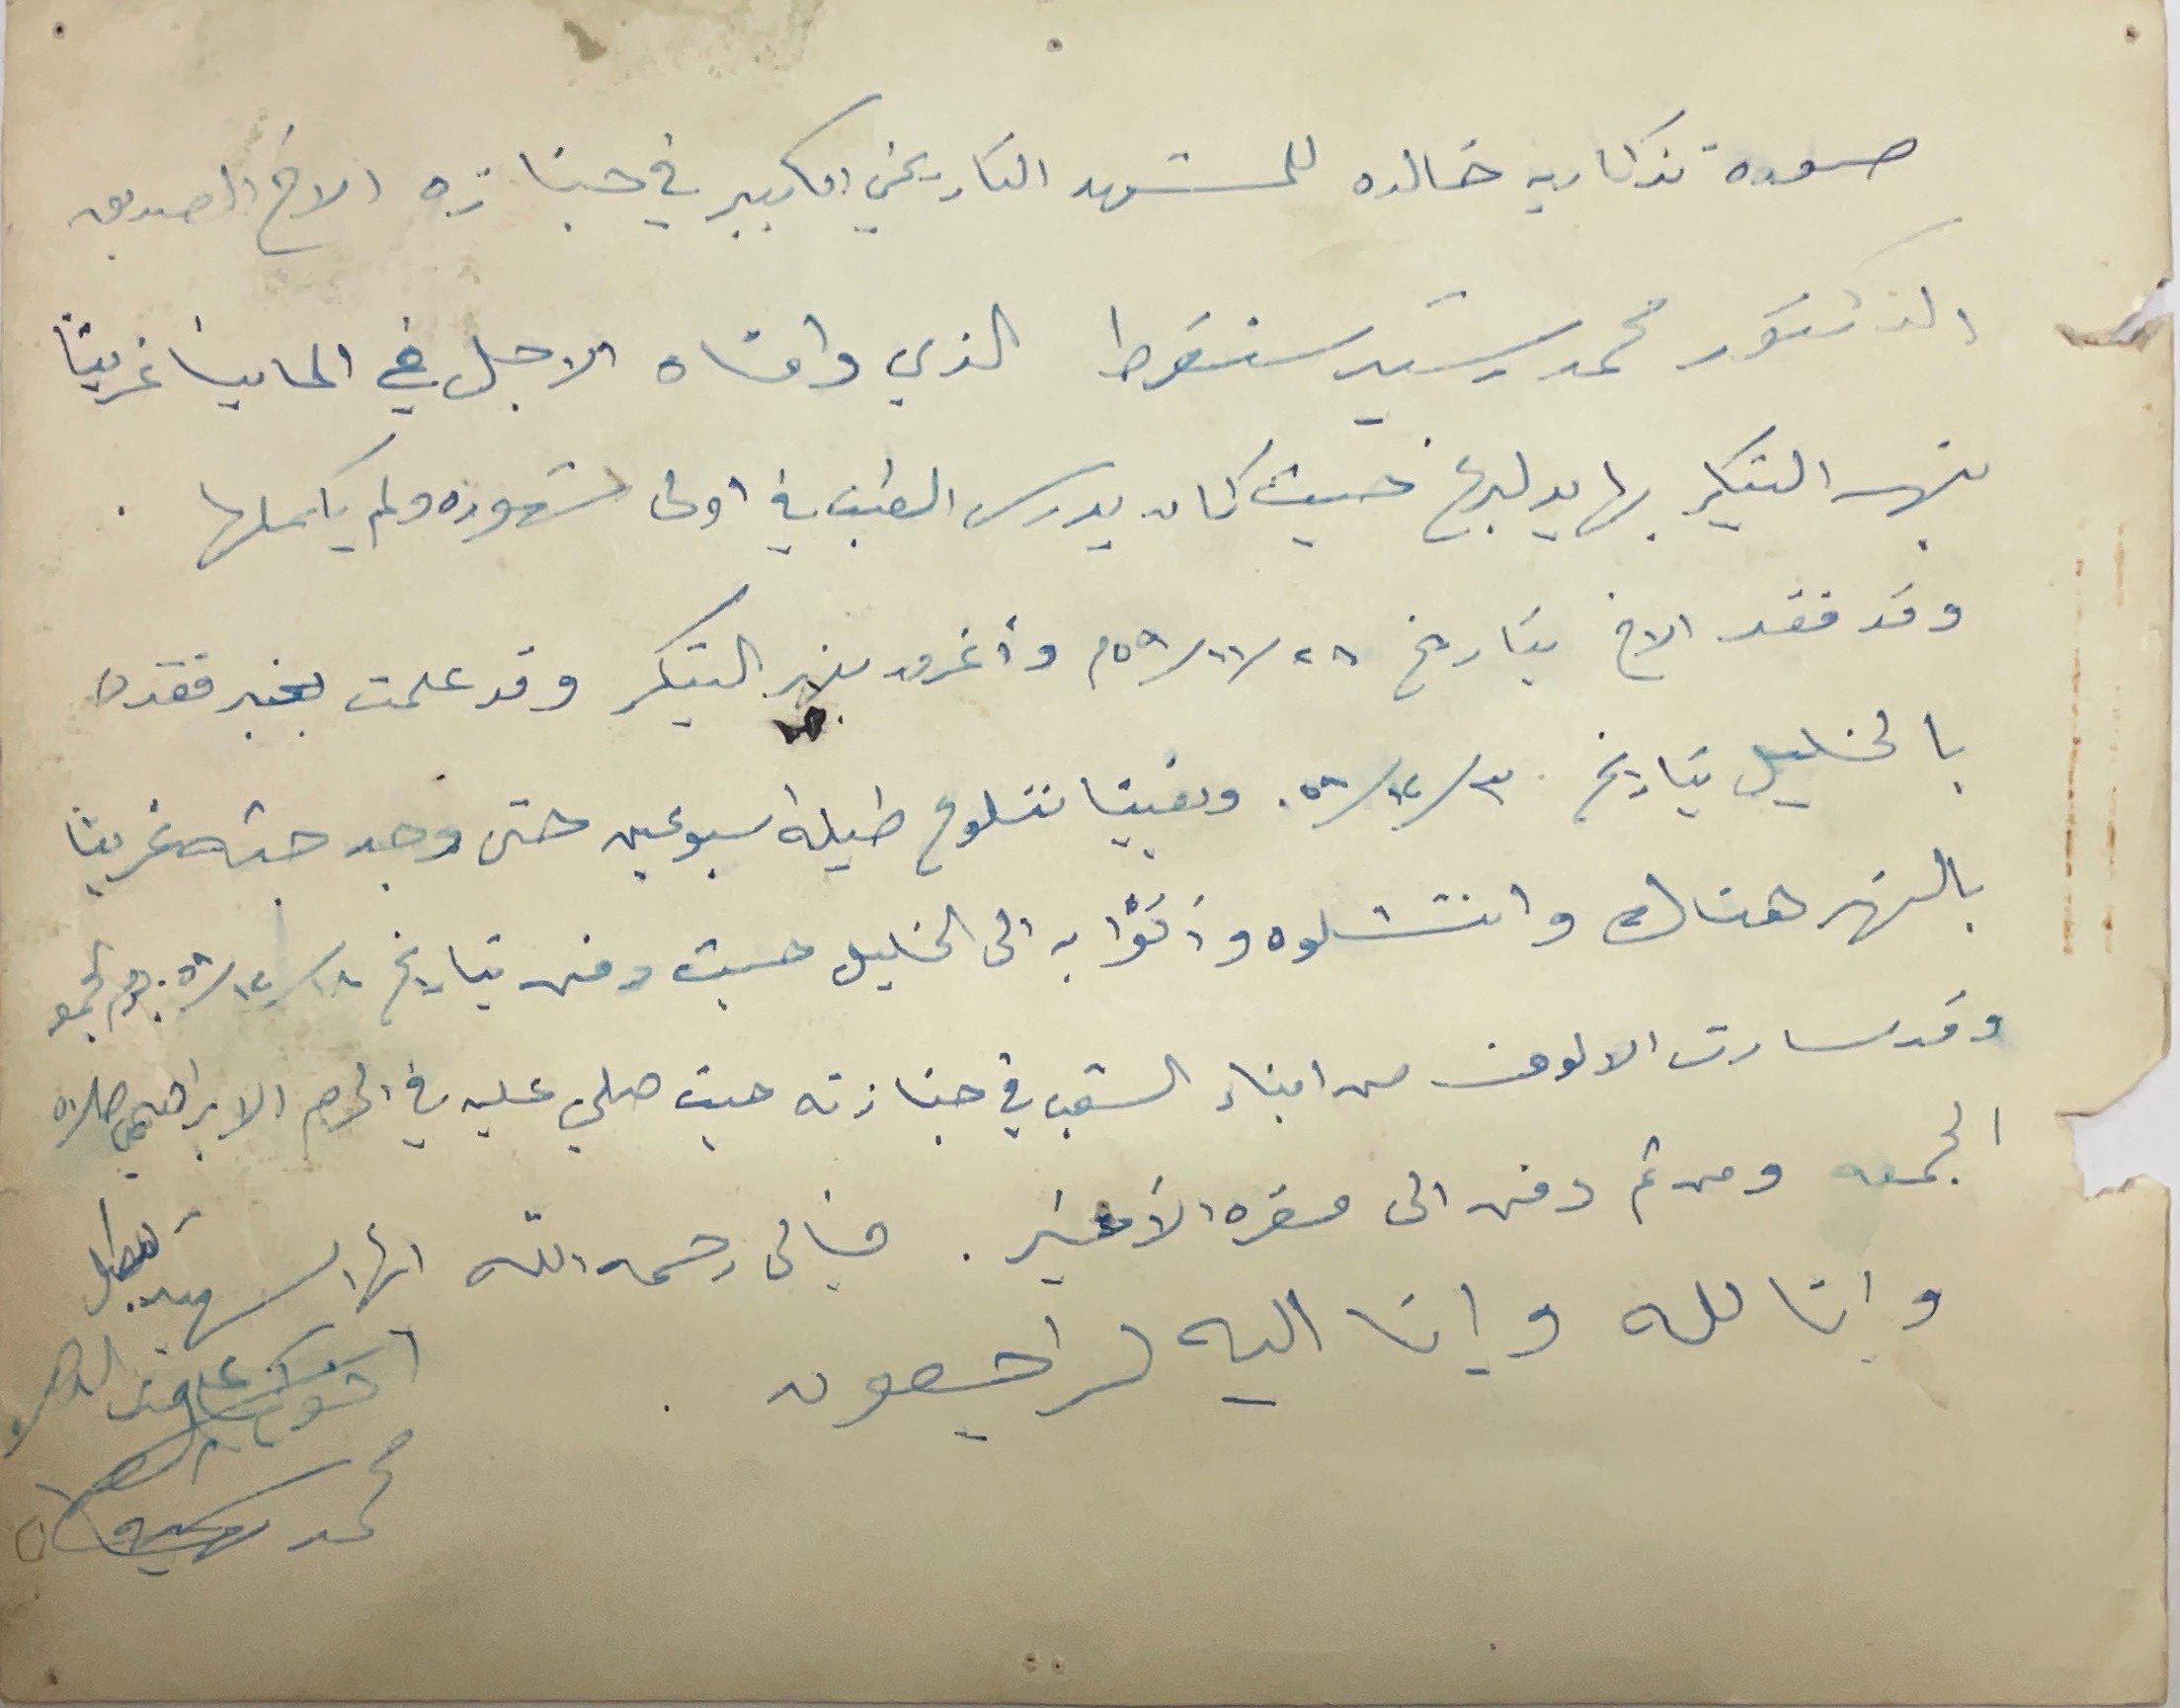 صوره تذكاريه خالده للمشهد التاريخي الكبير في جنازه الاخ الصديق
الدكتور محمد رشيد سنقرط الذي وافاه الاجل في المانيا غريقا
بنهر النيكر بهايدلبرغ حيث كان يدرس الطب في اولى شهوره ولم يكملها .
وقد فقد الاخ بتاريخ ٥٩/١١/٢٨م وأغرق بنهر النيكر وقد علمت بخبر فقده
بالخليل بتاريخ ٥٩/١٢/٣. وبقينا نتلوع طيلة اسبوعين حتى وجد جثه غريقا
بالنهر هناك وانتشلوه وأتوا به الى الخليل حيث دفن بتاريخ ٥٩/١٢/١٨ يوم الجمعه
وقد سارت الالوف من ابناء الشعب في جنازته حيث صلي عليه في الحرم الابراهيمي صلاة
الجمعه ومن ثم دفن الى مقره الأخير . فإلى رحمه الله ايها الشهيد البطل
وإنا لله وإنا اليه لراجعون .
محمد